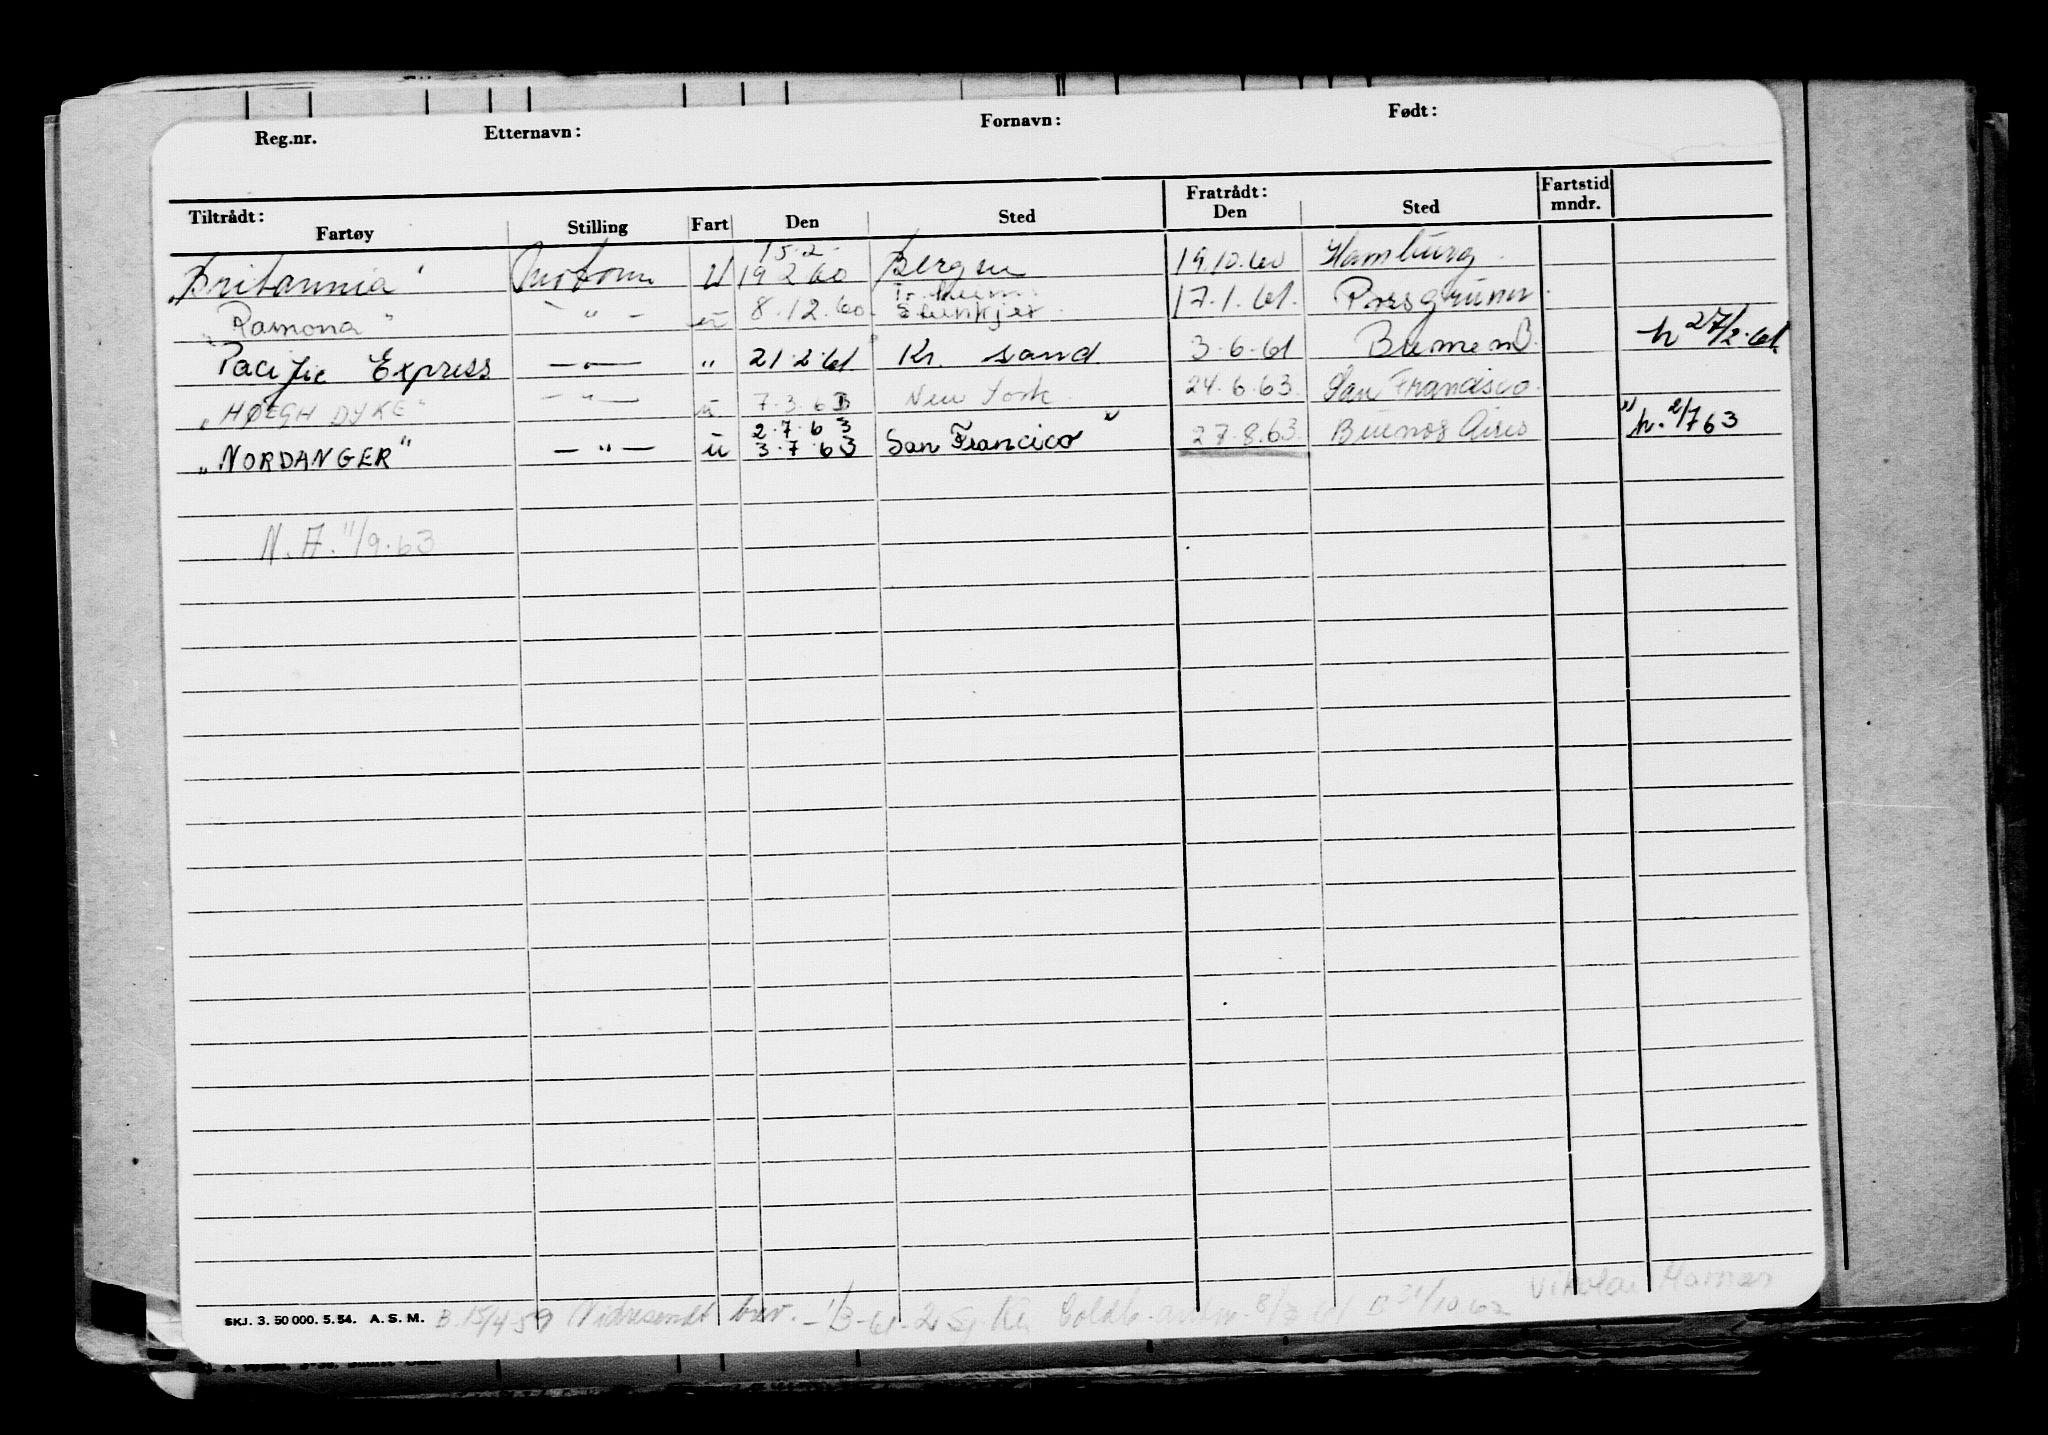 Reg.nr. Etternavn: Fornavn: Født:
Tiltrådt: Fratrådt: Fartstid
Fartøy Stilling Fart Den Sted Den Sted mndr.
15.2
"Britannia" Motorm U 19 2 60 Bergen 19.10.60 Hamburg.
Tr.heim
"Ramona" - " - u 8.12.60 Steinkjer. 17.1.61. Porsgrunn.
Pacific Express - " - " 21.2.61 Kr. sand 3.6.61 Bremen h 27/2.61
"HØEGH DYKE" - " - u 7.3.63 New York. 24.6.63. San Francisco.
2.7.63
"NORDANGER" - " - u 3.7.63 San Francico 27.8.63. Buenos Aires h. 2/7 63
N.A. 11/9.63
SKJ. 3. 50 000. 5. 54. A. S. M. B. 15/4-59 Vidresendt brev. - 1/3-61- B 31/10 62